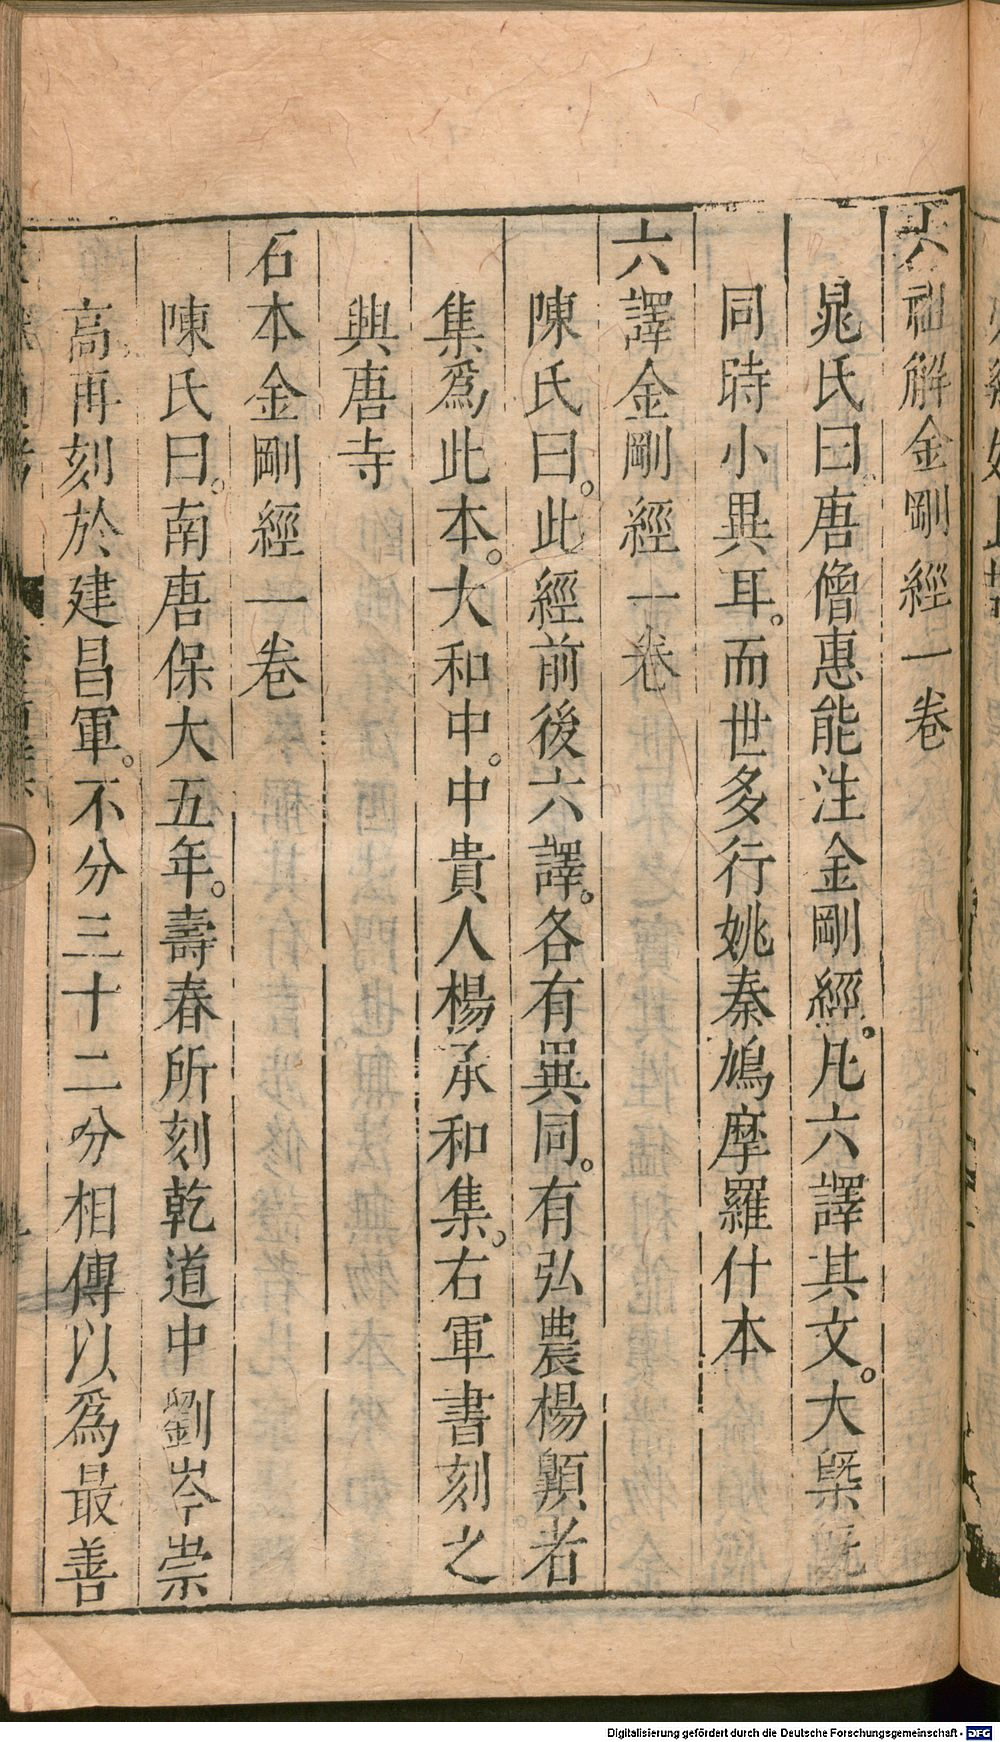 六祖解金剛經一卷
晁氏曰。唐僧惠能注金剛經。凡六譯其文。大槩既
同時小異耳。而世多行姚秦鳩摩羅什本
六譯金剛經一卷
陳氏曰。此經前後六譯。各有異同。有弘農楊顥者
集爲此本。大和中。中貴人楊承和集。右軍書刻之
興唐寺
石本金剛經一卷
陳氏曰。南唐保大五年。壽春所刻乾道中劉岑崇
高再刻於建昌軍。不分三十二分相傳以爲最善
Digitalisierung gefördert durch die Deutsche Forschungsgemeinschaft - DFG